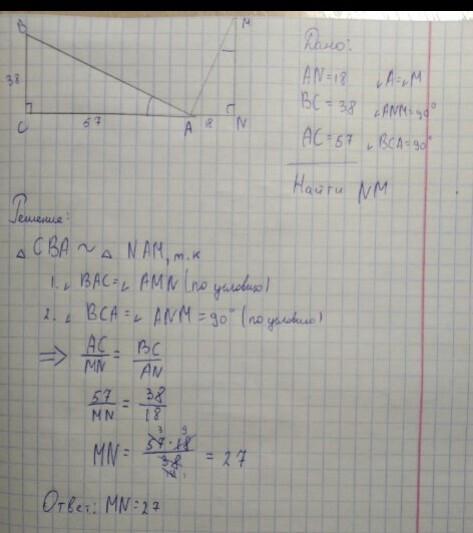 B
M
38
C
57
A
18
N
Дано:
AN=18 ∟A=∟M
BC=38 ∟ANM=90°
AC=57 ∟BCA=90°
Найти NM
Решение:
△CBA ~ △NAM, т.к
1. ∟BAC=∟AMN (по условию)
2. ∟BCA=∟ANM=90° (по условию)
⇒ AC/MN = BC/AN
57/MN = 38/18
MN = 57·18/38 = 27
Ответ: MN=27